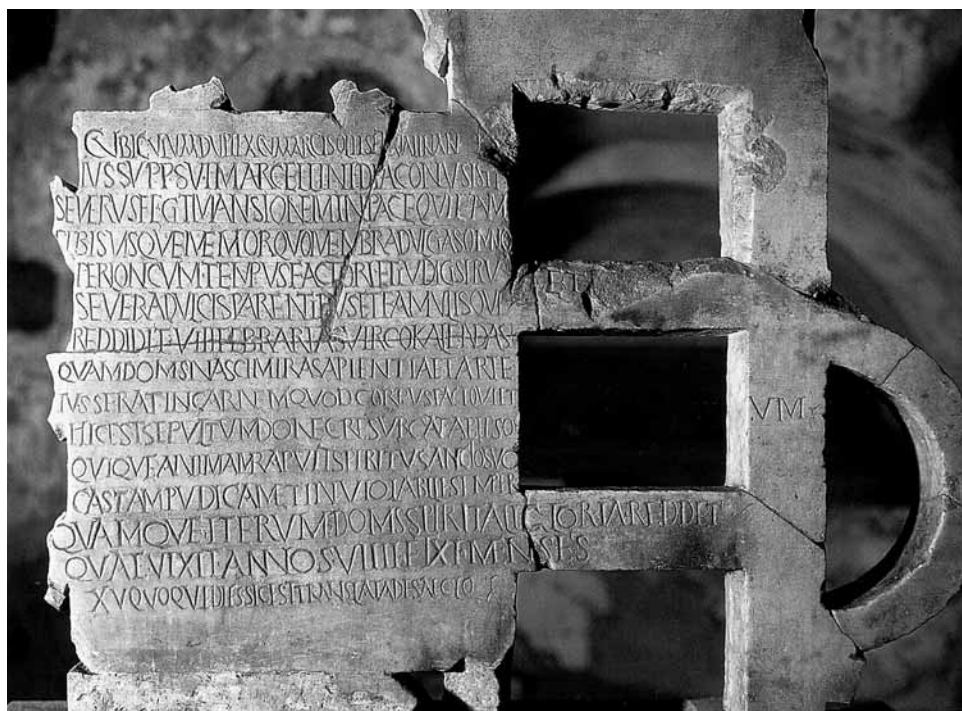 CVBICVLVM DVPLEX CVM ARCISOLIIS ET LVMINARE
IVSSV PP SVI MARCELLINI DIACONVS ISTE
SEVERVS FECIT MANSIONEM IN PACE QVIETAM
SIBI SVISQVE MEMOR QVO MEMBRA DVLCIA SOMNO
PER LONGVM TEMPVS FACTORI ET IVDICI SERVET
SEVERA DVLCIS PARENTIBVS ET FAMVLISQVE
REDDIDIT VIII FEBRARIAS VIRGO KALENDAS
QVAM DOMS NASCI MIRA SAPIENTIA ET ARTE
IVSSERAT IN CARNEM QVOD CORPVS PACE QVIETVM
HIC EST SEPVLTVM DONEC RESVRGAT AB IPSO
QVIQVE ANIMAM RAPVIT SPIRITV SANCTO SVO
CASTAM PVDICAM ET INVIOLABILE SEMPER
QVAMQVE ITERVM DOMS SPIRITALI GLORIA REDDET
QVAE VIXIT ANNOS VIIII ET XI MENSES
XV QVOQVE DIES SIC EST TRANSLATA DE SAECLO